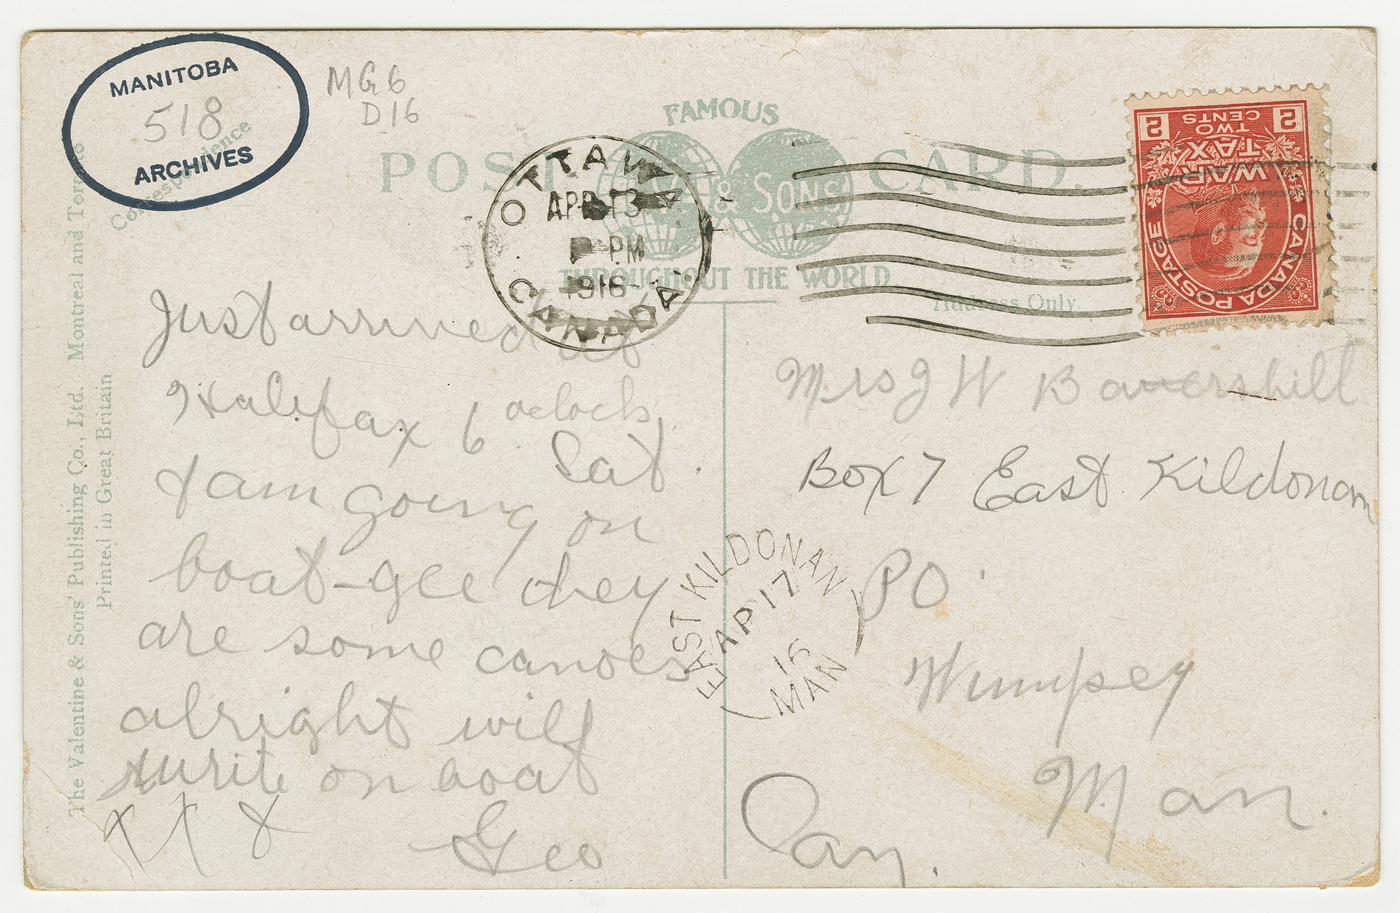 MANITOBA
518
ARCHIVES
MG6
D16
Correspondence
FAMOUS
POST CARD.
& SONS
THROUGHOUT THE WORLD
Address Only.
OTTAWA
APR 13
PM
1916
CANADA
2 TWO CENTS 2
WAR TAX
CANADA POSTAGE
The Valentine & Sons' Publishing Co., Ltd. Montreal and Toronto
Printed in Great Britain
Just arrived at
Halifax 6 oclock
Sat.
& am going on
boat-gee they
are some canoes
alright will
write on boat
x x x
Geo
Mrs J W Bavershill
Box 7 East Kildonan
PO
Winnipeg
Man.
Can.
EAST KILDONAN
AP 17
16
MAN